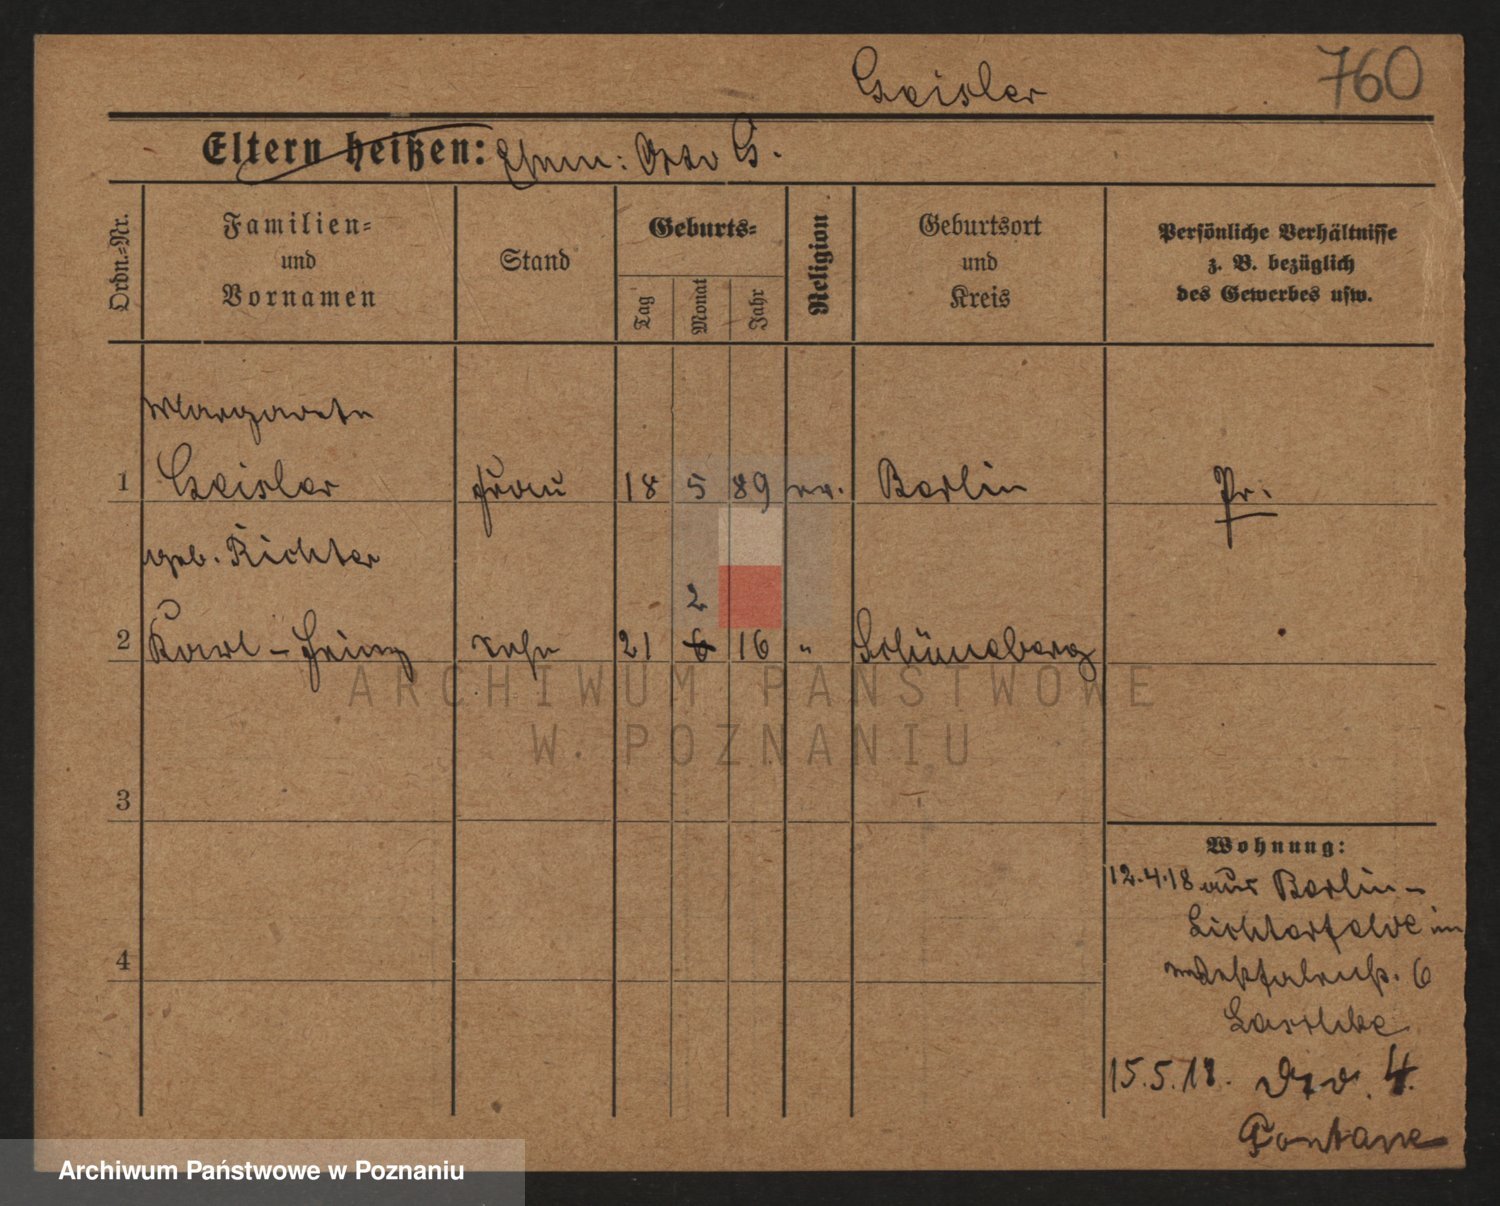 Geisler 760
Eltern heißen: Ehem: Otto G.
Ordn.-Nr.
Familien-
und
Vornamen
Stand
Geburts-
Tag
Monat
Jahr
Religion
Geburtsort
und
Kreis
Persönliche Verhältnisse
z. B. bezüglich
des Gewerbes usw.
Margarete
1 Geisler Frau 18 5 89 ev. Berlin Pr.
geb. Richter
2
2 Karl-Heinz Sohn 21 6 16 " Schöneberg
ARCHIWUM PAŃSTWOWE
W POZNANIU
3
Wohnung:
12.4.18 aus Berlin-
Lichterfelde in
4
Westfalenstr. 6
15.5.18. 4.
Fontane
Archiwum Państwowe w Poznaniu